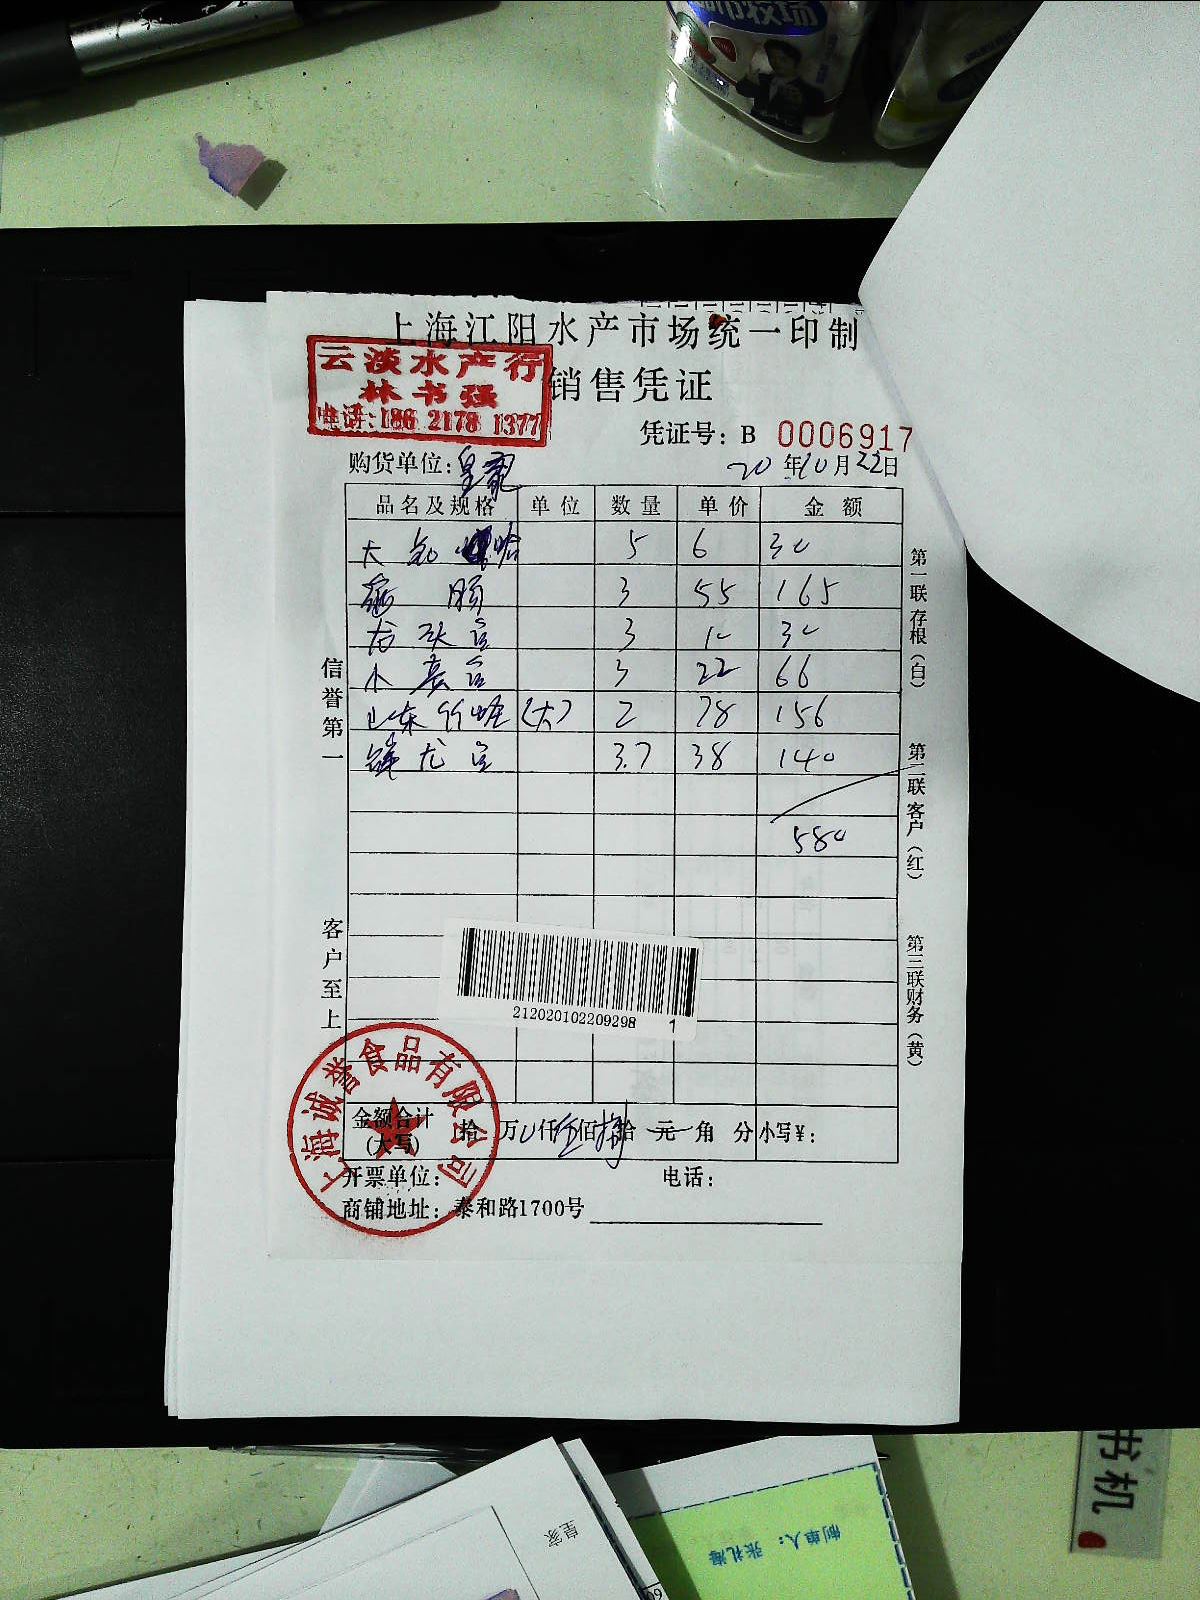 牧场
上海江阳水产市场统一印制
云淡水产行
林书强
电话:186 2178 1377
销售凭证
凭证号: B 0006917
购货单位:皇冠
20年10月22日
品名及规格 单位 数量 单价 金额
大 5 6 30
肠 3 55 165
龙头 3 10 30
小 3 22 66
山东竹蛏(大) 2 78 156
龙 3.7 38 140
580
信誉第一
客户至上
第一联存根(白)
第二联客户(红)
第三联财务(黄)
212020102209298 1
上海诚誉食品有限公司
金额合计(大写) 拾 万 0仟伍佰捌拾 元 角 分 小写¥:
开票单位: 电话:
商铺地址: 泰和路1700号
书机
皇家
制单人:张礼海